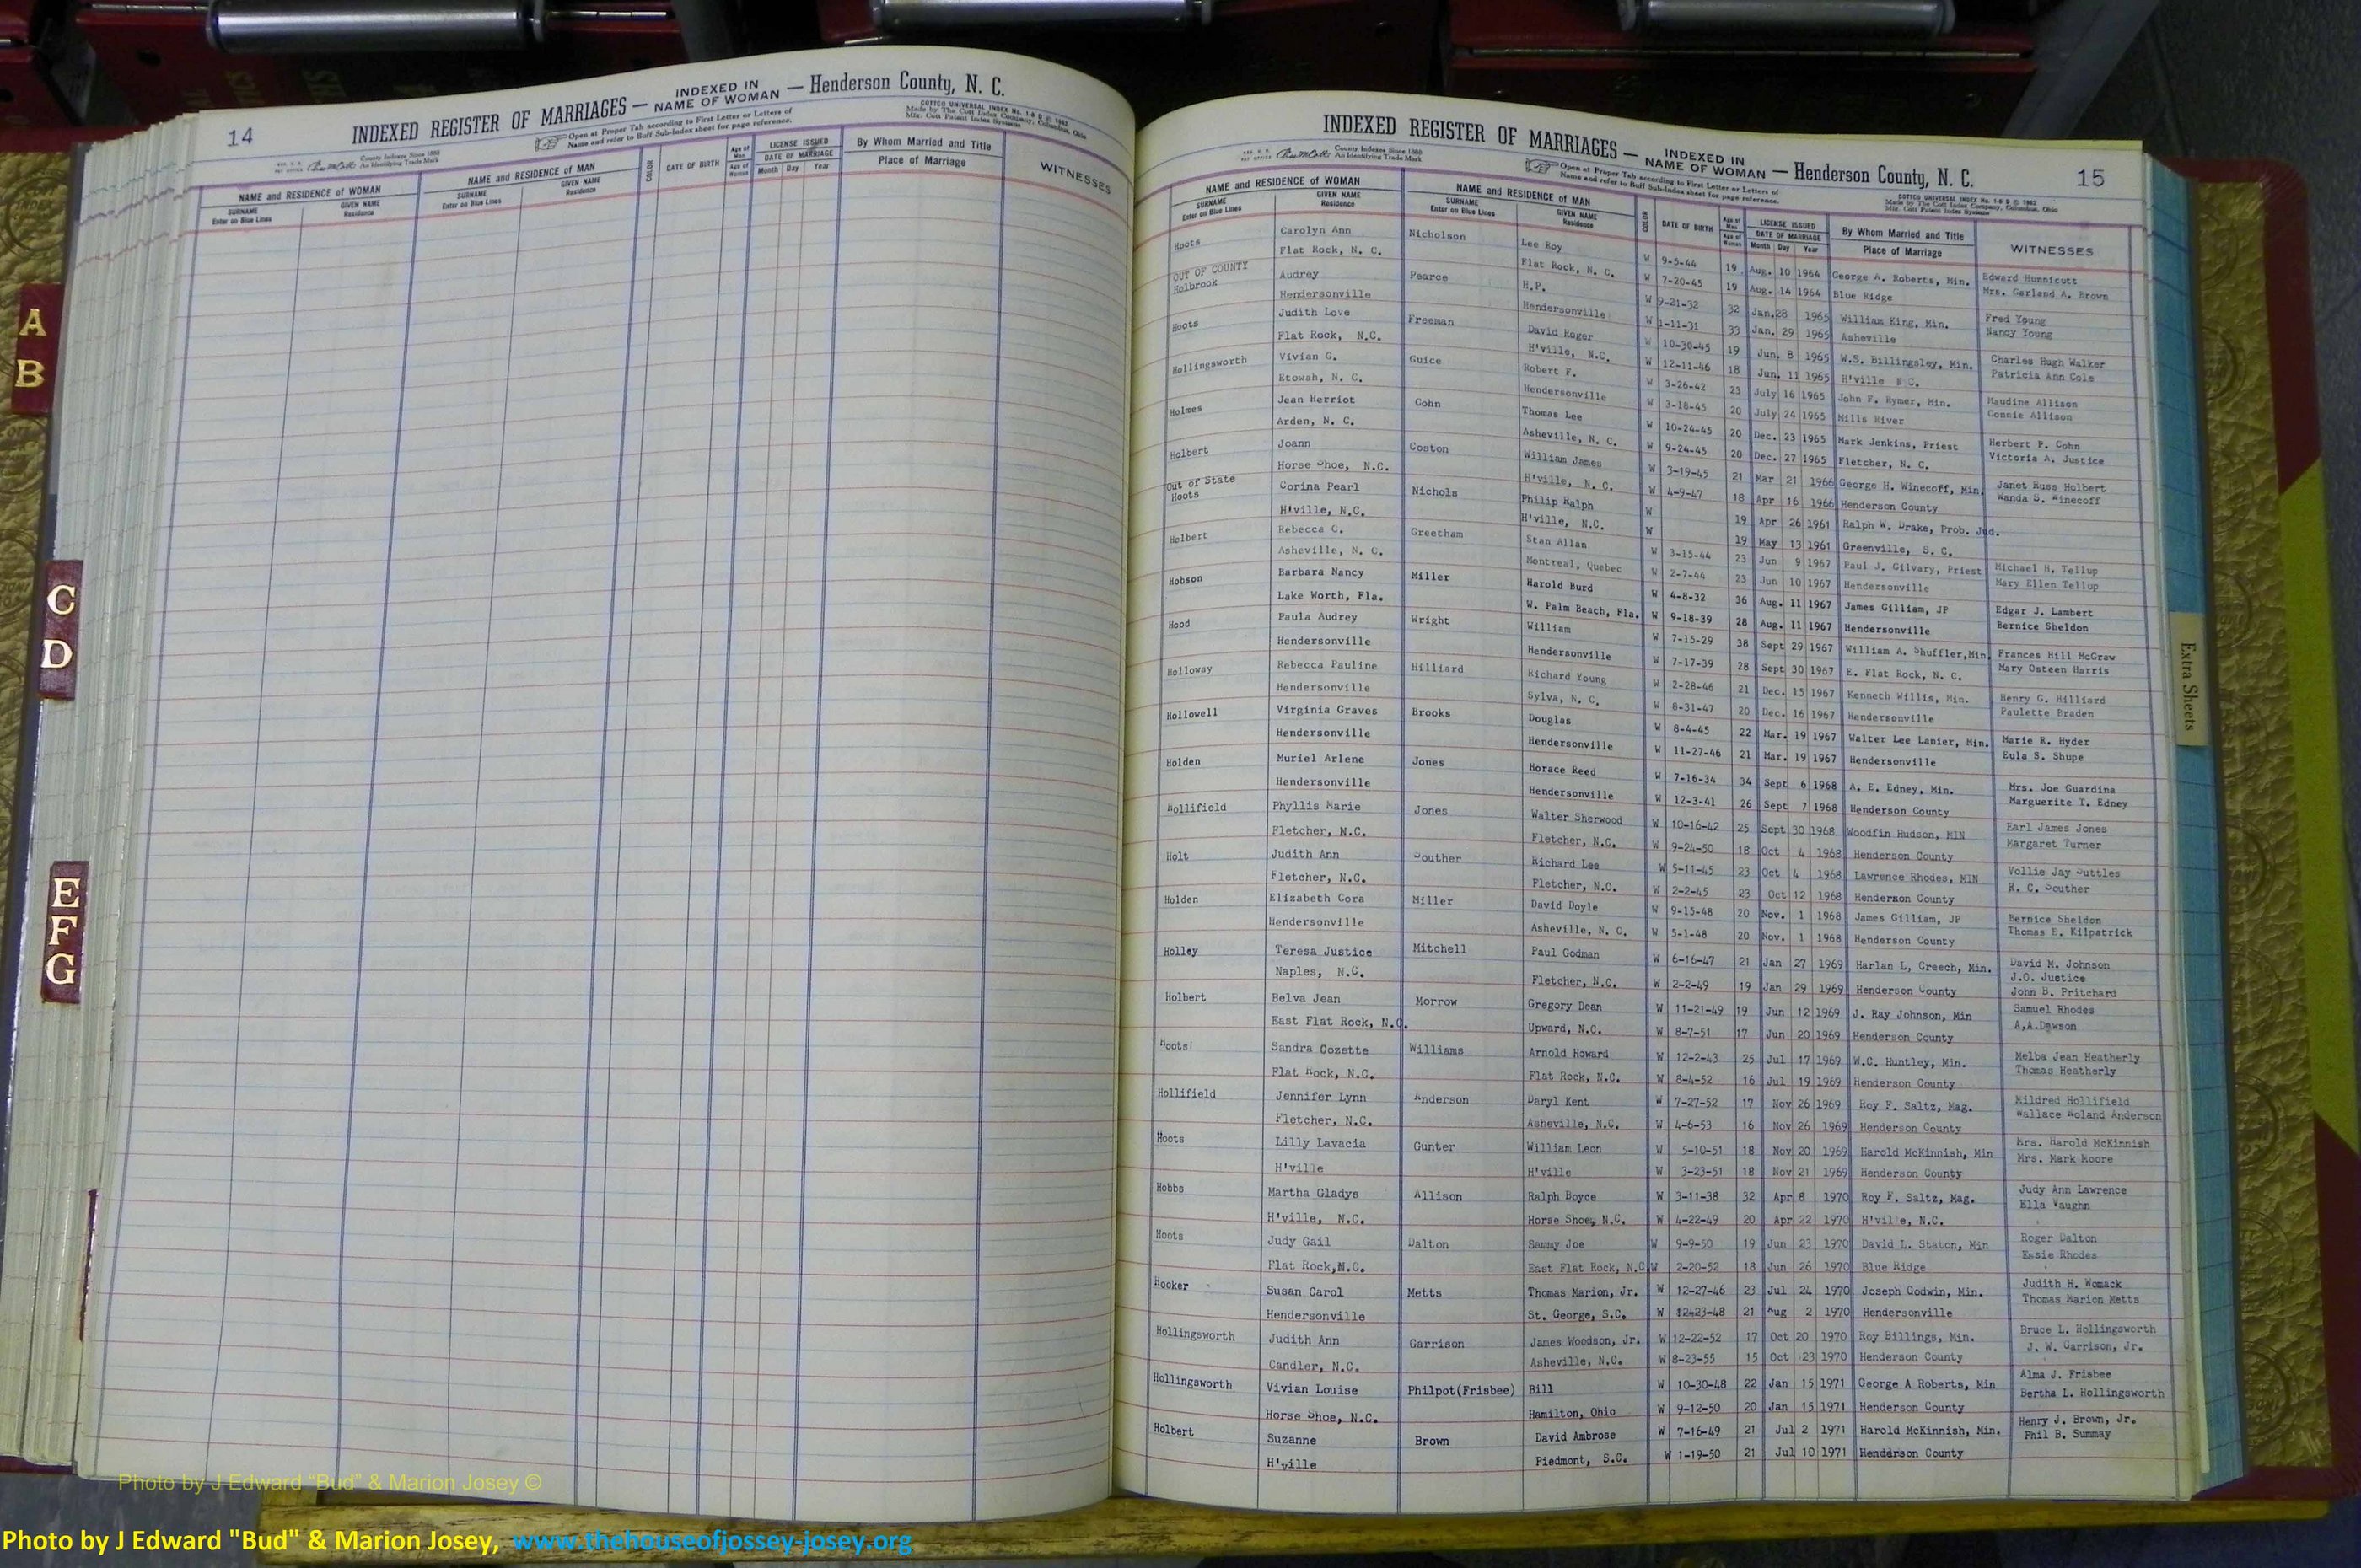 14
INDEXED REGISTER OF MARRIAGES — INDEXED IN NAME OF WOMAN — Henderson County, N. C.
Open at Proper Tab according to First Letter or Letters of
Name and refer to Buff Sub-Index sheet for page reference.
COTTCO UNIVERSAL INDEX No. 1-6 B © 1962
Made by The Cott Index Company, Columbus, Ohio
Mfr. Cott Patent Index Systems
County Indexes Since 1888
An Identifying Trade Mark
NAME and RESIDENCE OF WOMAN NAME and RESIDENCE OF MAN COLOR DATE OF BIRTH Age of Man LICENSE ISSUED By Whom Married and Title WITNESSES
SURNAME GIVEN NAME SURNAME GIVEN NAME Age of Woman DATE OF MARRIAGE Place of Marriage
Enter on Blue Lines Residence Enter on Blue Lines Residence Month Day Year
15
INDEXED REGISTER OF MARRIAGES — INDEXED IN NAME OF WOMAN — Henderson County, N. C.
Open at Proper Tab according to First Letter or Letters of
Name and refer to Buff Sub-Index sheet for page reference.
COTTCO UNIVERSAL INDEX No. 1-6 B © 1962
Made by The Cott Index Company, Columbus, Ohio
Mfr. Cott Patent Index Systems
County Indexes Since 1888
An Identifying Trade Mark
NAME and RESIDENCE OF WOMAN NAME and RESIDENCE OF MAN COLOR DATE OF BIRTH Age of Man LICENSE ISSUED By Whom Married and Title WITNESSES
SURNAME GIVEN NAME SURNAME GIVEN NAME Age of Woman DATE OF MARRIAGE Place of Marriage
Enter on Blue Lines Residence Enter on Blue Lines Residence Month Day Year
Hoots Carolyn Ann Nicholson Lee Roy W 9-5-44 19 Aug. 10 1964 George A. Roberts, Min. Edward Hunnicutt
Flat Rock, N. C. Flat Rock, N. C. W 7-20-45 19 Aug. 14 1964 Blue Ridge Mrs. Garland A. Brown
OUT OF COUNTY
Holbrook Audrey Pearce H.P. W 9-21-32 32 Jan. 28 1965 William King, Min. Fred Young
Hendersonville Hendersonville W 1-11-31 33 Jan. 29 1965 Asheville Nancy Young
Hoots Judith Love Freeman David Roger W 10-30-45 19 Jun. 8 1965 W.S. Billingsley, Min. Charles Hugh Walker
Flat Rock, N.C. H'ville, N.C. W 12-11-46 18 Jun. 11 1965 H'ville N.C. Patricia Ann Cole
Hollingsworth Vivian G. Guice Robert F. W 3-26-42 23 July 16 1965 John F. Rymer, Min. Maudine Allison
Etowah, N. C. Hendersonville W 3-18-45 20 July 24 1965 Mills River Connie Allison
Holmes Jean Herriot Cohn Thomas Lee W 10-24-45 20 Dec. 23 1965 Mark Jenkins, Priest Herbert P. Cohn
Arden, N. C. Asheville, N. C. W 9-24-45 20 Dec. 27 1965 Fletcher, N. C. Victoria A. Justice
Holbert Joann Coston William James W 3-19-45 21 Mar 21 1966 George H. Winecoff, Min. Janet Russ Holbert
Horse Shoe, N.C. H'ville, N. C. W 4-9-47 18 Apr 16 1966 Henderson County Wanda S. Winecoff
Out of State
Hoots Corina Pearl Nichols Philip Ralph W 19 Apr 26 1961 Ralph W. Drake, Prob. Jud.
H'ville, N.C. H'ville, N.C. W 19 May 13 1961 Greenville, S. C.
Holbert Rebecca C. Greetham Stan Allan W 3-15-44 23 Jun 9 1967 Paul J. Gilvary, Priest Michael H. Tellup
Asheville, N. C. Montreal, Quebec W 2-7-44 23 Jun 10 1967 Hendersonville Mary Ellen Tellup
Hobson Barbara Nancy Miller Harold Burd W 4-8-32 36 Aug. 11 1967 James Gilliam, JP Edgar J. Lambert
Lake Worth, Fla. W. Palm Beach, Fla. W 9-18-39 28 Aug. 11 1967 Hendersonville Bernice Sheldon
Hood Paula Audrey Wright William W 7-15-29 38 Sept 29 1967 William A. Shuffler, Min. Frances Hill McGraw
Hendersonville Hendersonville W 7-17-39 28 Sept 30 1967 E. Flat Rock, N. C. Mary Osteen Harris
Holloway Rebecca Pauline Hilliard Richard Young W 2-28-46 21 Dec. 15 1967 Kenneth Willis, Min. Henry G. Hilliard
Hendersonville Sylva, N. C. W 8-31-47 20 Dec. 16 1967 Hendersonville Paulette Braden
Hollowell Virginia Graves Brooks Douglas W 8-4-45 22 Mar. 19 1967 Walter Lee Lanier, Min. Marie R. Hyder
Hendersonville Hendersonville W 11-27-46 21 Mar. 19 1967 Hendersonville Eula S. Shupe
Holden Muriel Arlene Jones Horace Reed W 7-16-34 34 Sept 6 1968 A. E. Edney, Min. Mrs. Joe Guardina
Hendersonville Hendersonville W 12-3-41 26 Sept 7 1968 Henderson County Marguerite T. Edney
Hollifield Phyllis Marie Jones Walter Sherwood W 10-16-42 25 Sept 30 1968 Woodfin Hudson, MIN Earl James Jones
Fletcher, N.C. Fletcher, N.C. W 9-24-50 18 Oct 4 1968 Henderson County Margaret Turner
Holt Judith Ann Souther Richard Lee W 5-11-45 23 Oct 4 1968 Lawrence Rhodes, MIN Vollie Jay Suttles
Fletcher, N.C. Fletcher, N.C. W 2-2-45 23 Oct 12 1968 Henderson County R. C. Souther
Holden Elizabeth Cora Miller David Doyle W 9-15-48 20 Nov. 1 1968 James Gilliam, JP Bernice Sheldon
Hendersonville Asheville, N. C. W 5-1-48 20 Nov. 1 1968 Henderson County Thomas E. Kilpatrick
Holley Teresa Justice Mitchell Paul Godman W 6-16-47 21 Jan 27 1969 Harlan L, Creech, Min. David M. Johnson
J.O. Justice
Naples, N.C. Fletcher, N.C. W 2-2-49 19 Jan 29 1969 Henderson County John B. Pritchard
Holbert Belva Jean Morrow Gregory Dean W 11-21-49 19 Jun 12 1969 J. Ray Johnson, Min Samuel Rhodes
East Flat Rock, N.C. Upward, N.C. W 8-7-51 17 Jun 20 1969 Henderson County A.A.Dawson
Hoots Sandra Cozette Williams Arnold Howard W 12-2-43 25 Jul 17 1969 W.C. Huntley, Min. Melba Jean Heatherly
Flat Rock, N.C. Flat Rock, N.C. W 8-4-52 16 Jul 19 1969 Henderson County Thomas Heatherly
Hollifield Jennifer Lynn Anderson Daryl Kent W 7-27-52 17 Nov 26 1969 Roy F. Saltz, Mag. Mildred Hollifield
Fletcher, N.C. Asheville, N.C. W 4-6-53 16 Nov 26 1969 Henderson County Wallace Roland Anderson
Hoots Lilly Lavacia Gunter William Leon W 5-10-51 18 Nov 20 1969 Harold McKinnish, Min Mrs. Harold McKinnish
H'ville H'ville W 3-23-51 18 Nov 21 1969 Henderson County Mrs. Mark Moore
Hobbs Martha Gladys Allison Ralph Boyce W 3-11-38 32 Apr 8 1970 Roy F. Saltz, Mag. Judy Ann Lawrence
H'ville, N.C. Horse Shoe, N.C. W 4-22-49 20 Apr 22 1970 H'ville, N.C. Ella Vaughn
Hoots Judy Gail Dalton Sammy Joe W 9-9-50 19 Jun 23 1970 David L. Staton, Min Roger Dalton
Flat Rock,N.C. East Flat Rock, N.C W 2-20-52 18 Jun 26 1970 Blue Ridge Essie Rhodes
Hooker Susan Carol Metts Thomas Marion, Jr. W 12-27-46 23 Jul 24 1970 Joseph Godwin, Min. Judith H. Womack
Hendersonville St. George, S.C. W 12-23-48 21 Aug 2 1970 Hendersonville Thomas Marion Metts
Hollingsworth Judith Ann Garrison James Woodson, Jr. W 12-22-52 17 Oct 20 1970 Roy Billings, Min. Bruce L. Hollingsworth
Candler, N.C. Asheville, N.C. W 8-23-55 15 Oct 23 1970 Henderson County J. W. Garrison, Jr.
Hollingsworth Vivian Louise Philpot(Frisbee) Bill W 10-30-48 22 Jan 15 1971 George A Roberts, Min Alma J. Frisbee
Horse Shoe, N.C. Hamilton, Ohio W 9-12-50 20 Jan 15 1971 Henderson County Bertha L. Hollingsworth
Holbert Suzanne Brown David Ambrose W 7-16-49 21 Jul 2 1971 Harold McKinnish, Min. Henry J. Brown, Jr.
H'ville Piedmont, S.C. W 1-19-50 21 Jul 10 1971 Henderson County Phil B. Summay
A
B
C
D
E
F
G
Extra Sheets
Photo by J Edward "Bud" & Marion Josey ©
Photo by J Edward "Bud" & Marion Josey, www.thehouseofjossey-josey.org